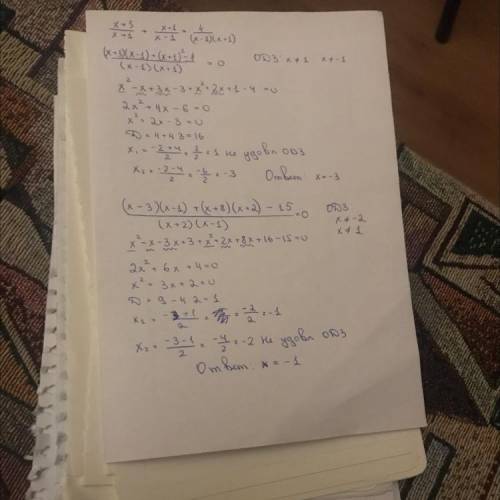 x+3/x+1 + x+1/x-1 = 4/(x-1)(x+1)
(x+3)(x-1)+(x+1)²-4/(x-1)(x+1) = 0 ОДЗ: x≠1 x≠-1
x² -x +3x -3 +x² +2x +1 -4 =0
2x² +4x -6 =0
x² +2x -3 =0
D = 4+4·3=16
x₁ = -2+4/2 = 2/2 = 1 не удовл ОДЗ
x₂ = -2-4/2 = -6/2 = -3 Ответ x=-3
(x-3)(x-1)+(x+8)(x+2)-15/(x+2)(x-1) =0 ОДЗ
x≠-2
x≠1
x² -x -3x +3 +x² +2x +8x +16 -15=0
2x² +6x +4=0
x² +3x +2=0
D = 9-4·2=1
x₁ = -3+1/2 = -2/2 = -1
x₂ = -3-1/2 = -4/2 = -2 не удовл ОДЗ
Ответ. x = -1